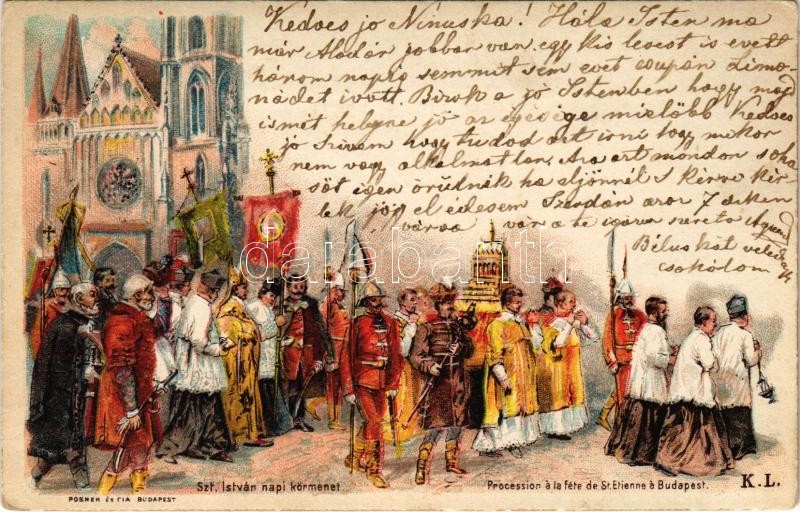 Kedves jó Ninuska! Hála Isten ma
már Aladár jobban van, egy kis levest is evett
három napig semmit sem evet csupán Limo-
nádet ivott. Bizok a jó Istenben hogy majd
ismét helyre jő az egésége mielőbb Kedves
jó Szivem hogy tudod azt irni hogy mikor
nem vagy alkalmatlan, Ara azt mondom soha
söt igen örűlnék ha eljönnél s kérve kér-
lek jőj el édesem Szerdán 7
várva vár a te igazan szerető
Béluskát
csókolom
darabanth
Szt. István napi körmenet.
Procession à la fête de St. Etienne à Budapest.
K. L.
POSNER és FIA BUDAPEST